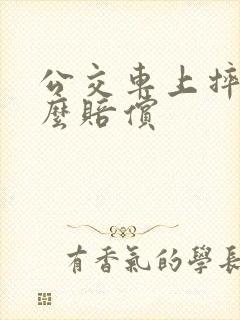 公交車上摔
麼賠償
有香氣的學長